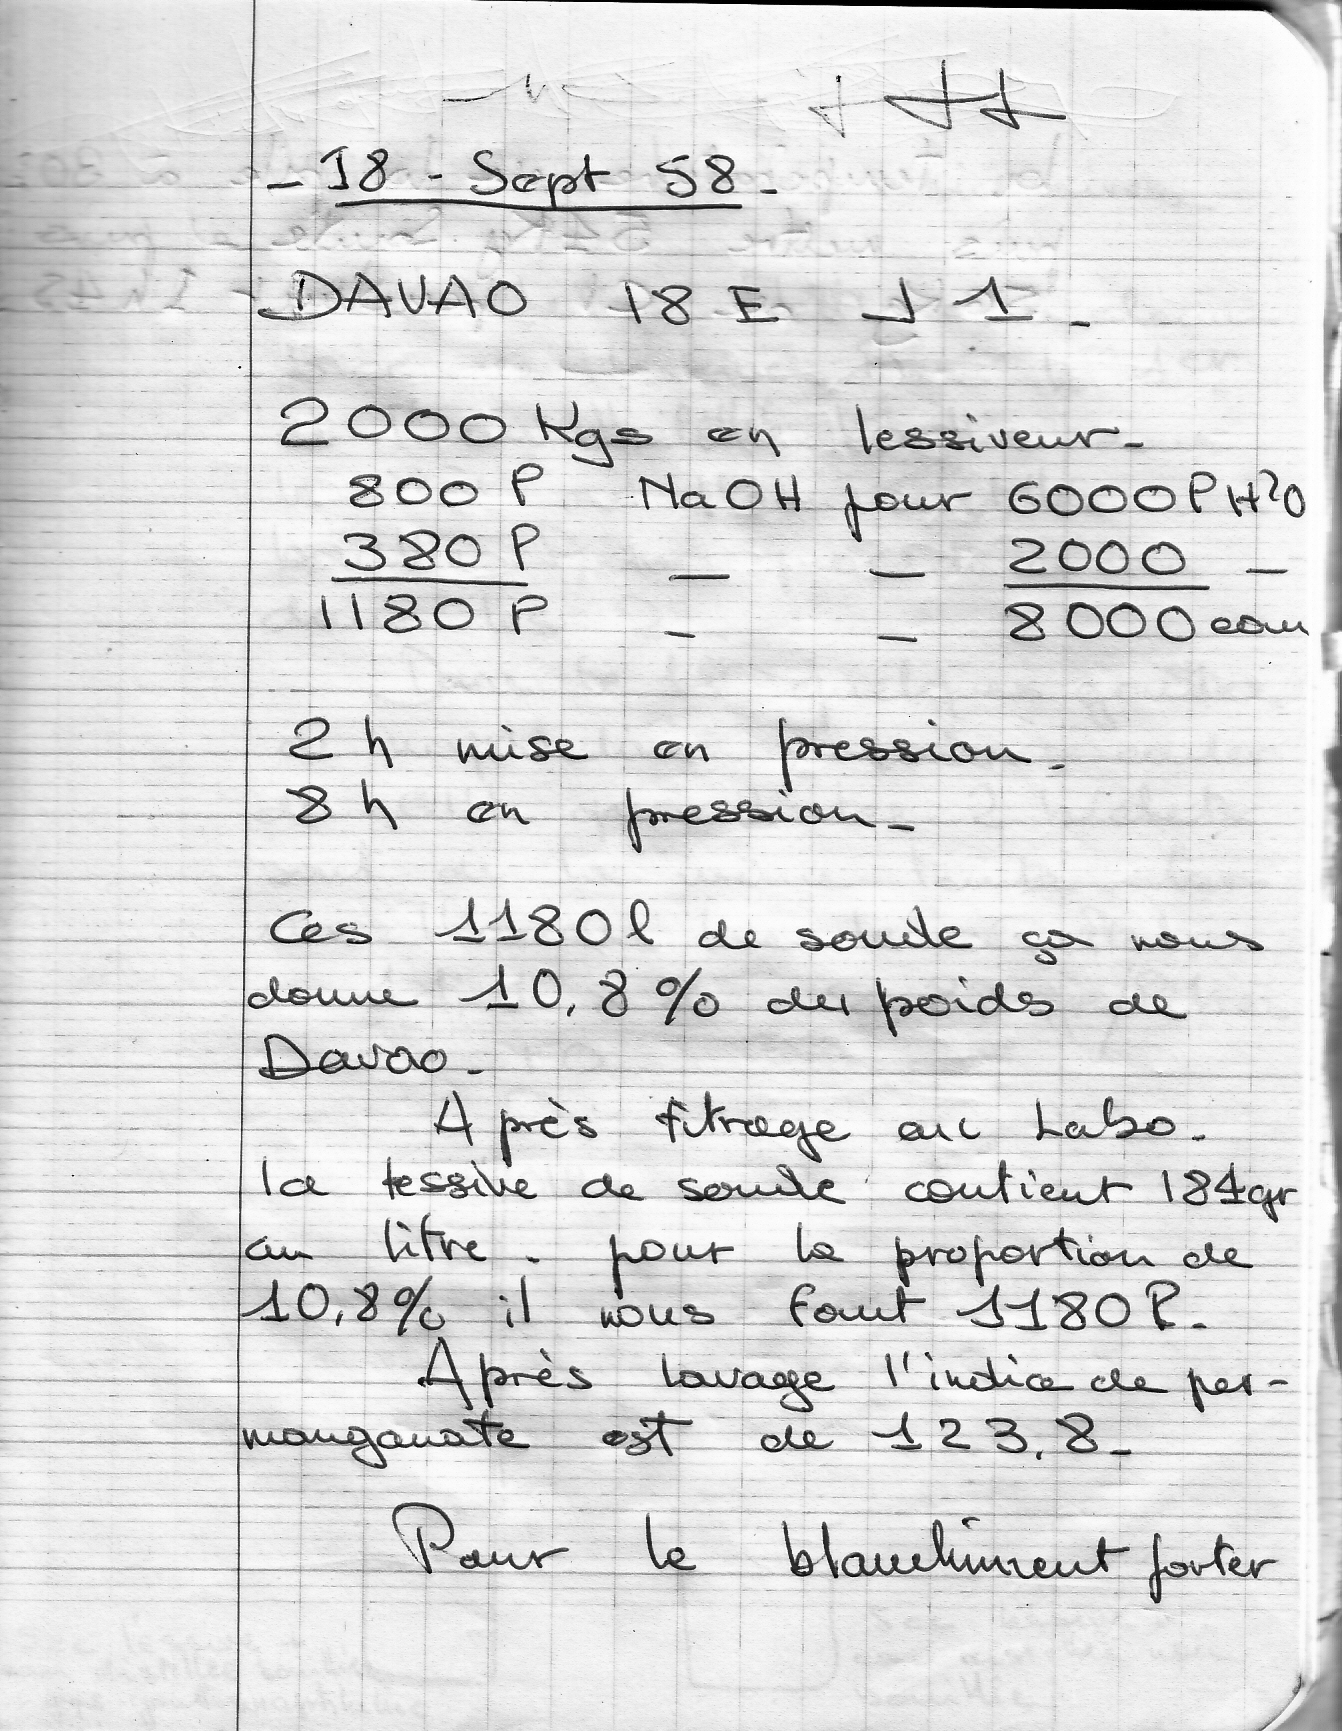 - 18 - Sept 58 -
DAVAO 18 E J 1 -
2000 Kgs en lessiveur -
800 l NaOH pour 6000 l H²O
380 l — — 2000 —
1180 l - - 8000 eau
2 h mise en pression -
8 h en pression -
Ces 1180 l de soude ça nous
donne 10,8 % du poids de
Davao -
Après titrage au Labo -
la lessive de soude contient 184 gr
au litre. pour la proportion de
10,8 % il nous faut 1180 l.
Après lavage l'indice de per-
manganate est de 123,8 -
Pour le blanchiment porter